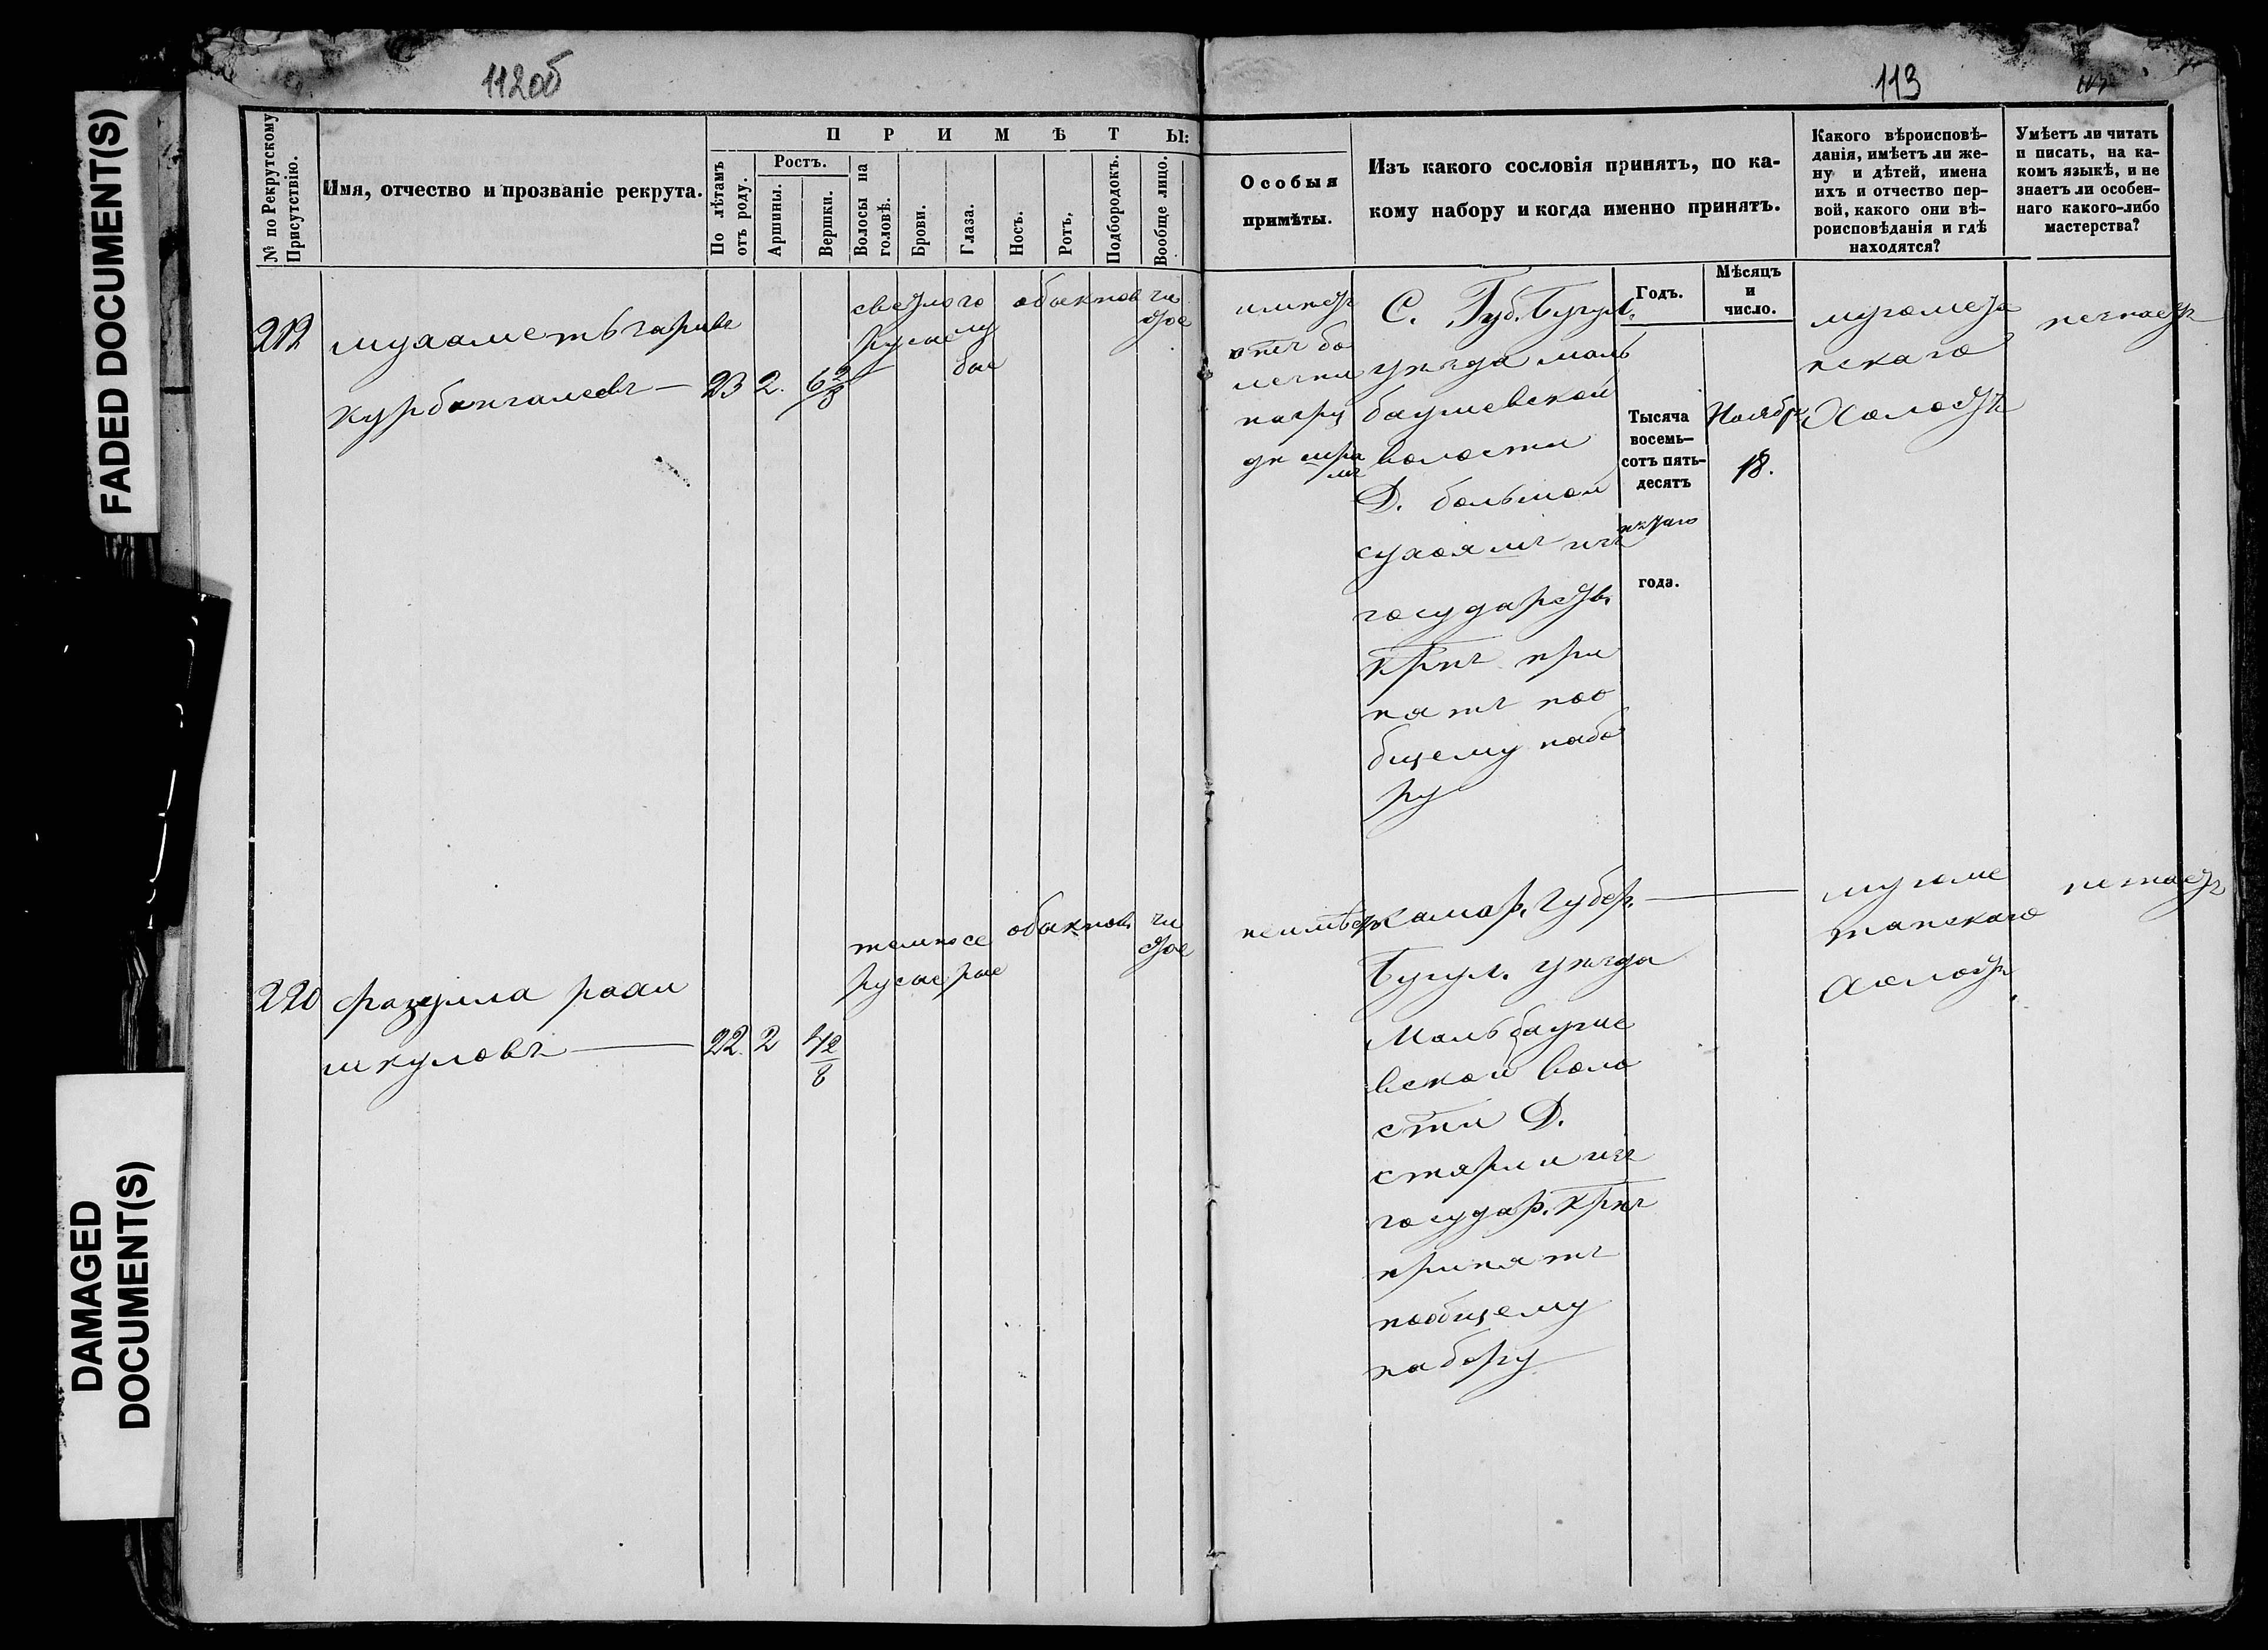 FADED DOCUMENT(S)
DAMAGED
DOCUMENT(S)
112об
113
№ по Рекрутскому
Присутствію.
Имя, отчество и прозваніе рекрута.
ПРИМѢТЫ:
По лѣтамъ
отъ роду.
Ростъ.
Аршины.
Вершки.
Волосы на
головѣ.
Брови.
Глаза.
Носъ.
Ротъ,
Подбородокъ.
Вообще лицо.
Особыя
примѣты.
Изъ какого сословія принятъ, по ка-
кому набору и когда именно принятъ.
Годъ.
Мѣсяцъ
и
число.
Какого вѣроисповѣ-
данія, имѣетъ ли же-
ну и дѣтей, имена
ихъ и отчество пер-
вой, какого они вѣ-
роисповѣданія и гдѣ
находятся?
Умѣетъ ли читать
и писать, на ка-
комъ языкѣ, и не
знаетъ ли особен-
наго какого-либо
мастерства?
219
мухаметьгаривъ
курбангалеевъ
23 2. 6 2/8
светлого
русые
голу
бые
обыкнов
чи
стое
имеетъ
отъ бо
лезни
на гру
де шра
мъ
С. Губ. Бугул.
уезда маль
баушевской
волости
Д. большой
сухоямъ изъ
государств.
крѣ при
нятъ поо
бщему набо
ру
Тысяча
восемь-
сотъ пять-
десятъ
пятаго
года.
Ноябр
18.
мугомета
нскаго
Холостъ
незнаетъ
220
фазулла рахи
мкуловъ
22. 2 4 2/8
темно
русые
се
рые
обыкнов.
чи
стое
неимѣетъ
Самар. губер.
Бугул. уезда
Мальбауше
вской воло
сти Д.
изъ
государ. крѣ
принятъ
пообщему
набору
мугоме
танскаго
холостъ
незнаетъ